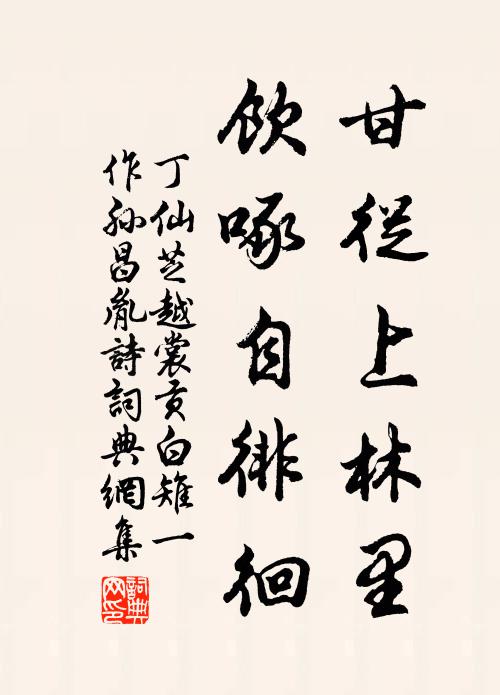 甘從上林里
飲啄自徘徊
丁仙芝越裳貢白雉一
作孫昌胤詩詞典網集